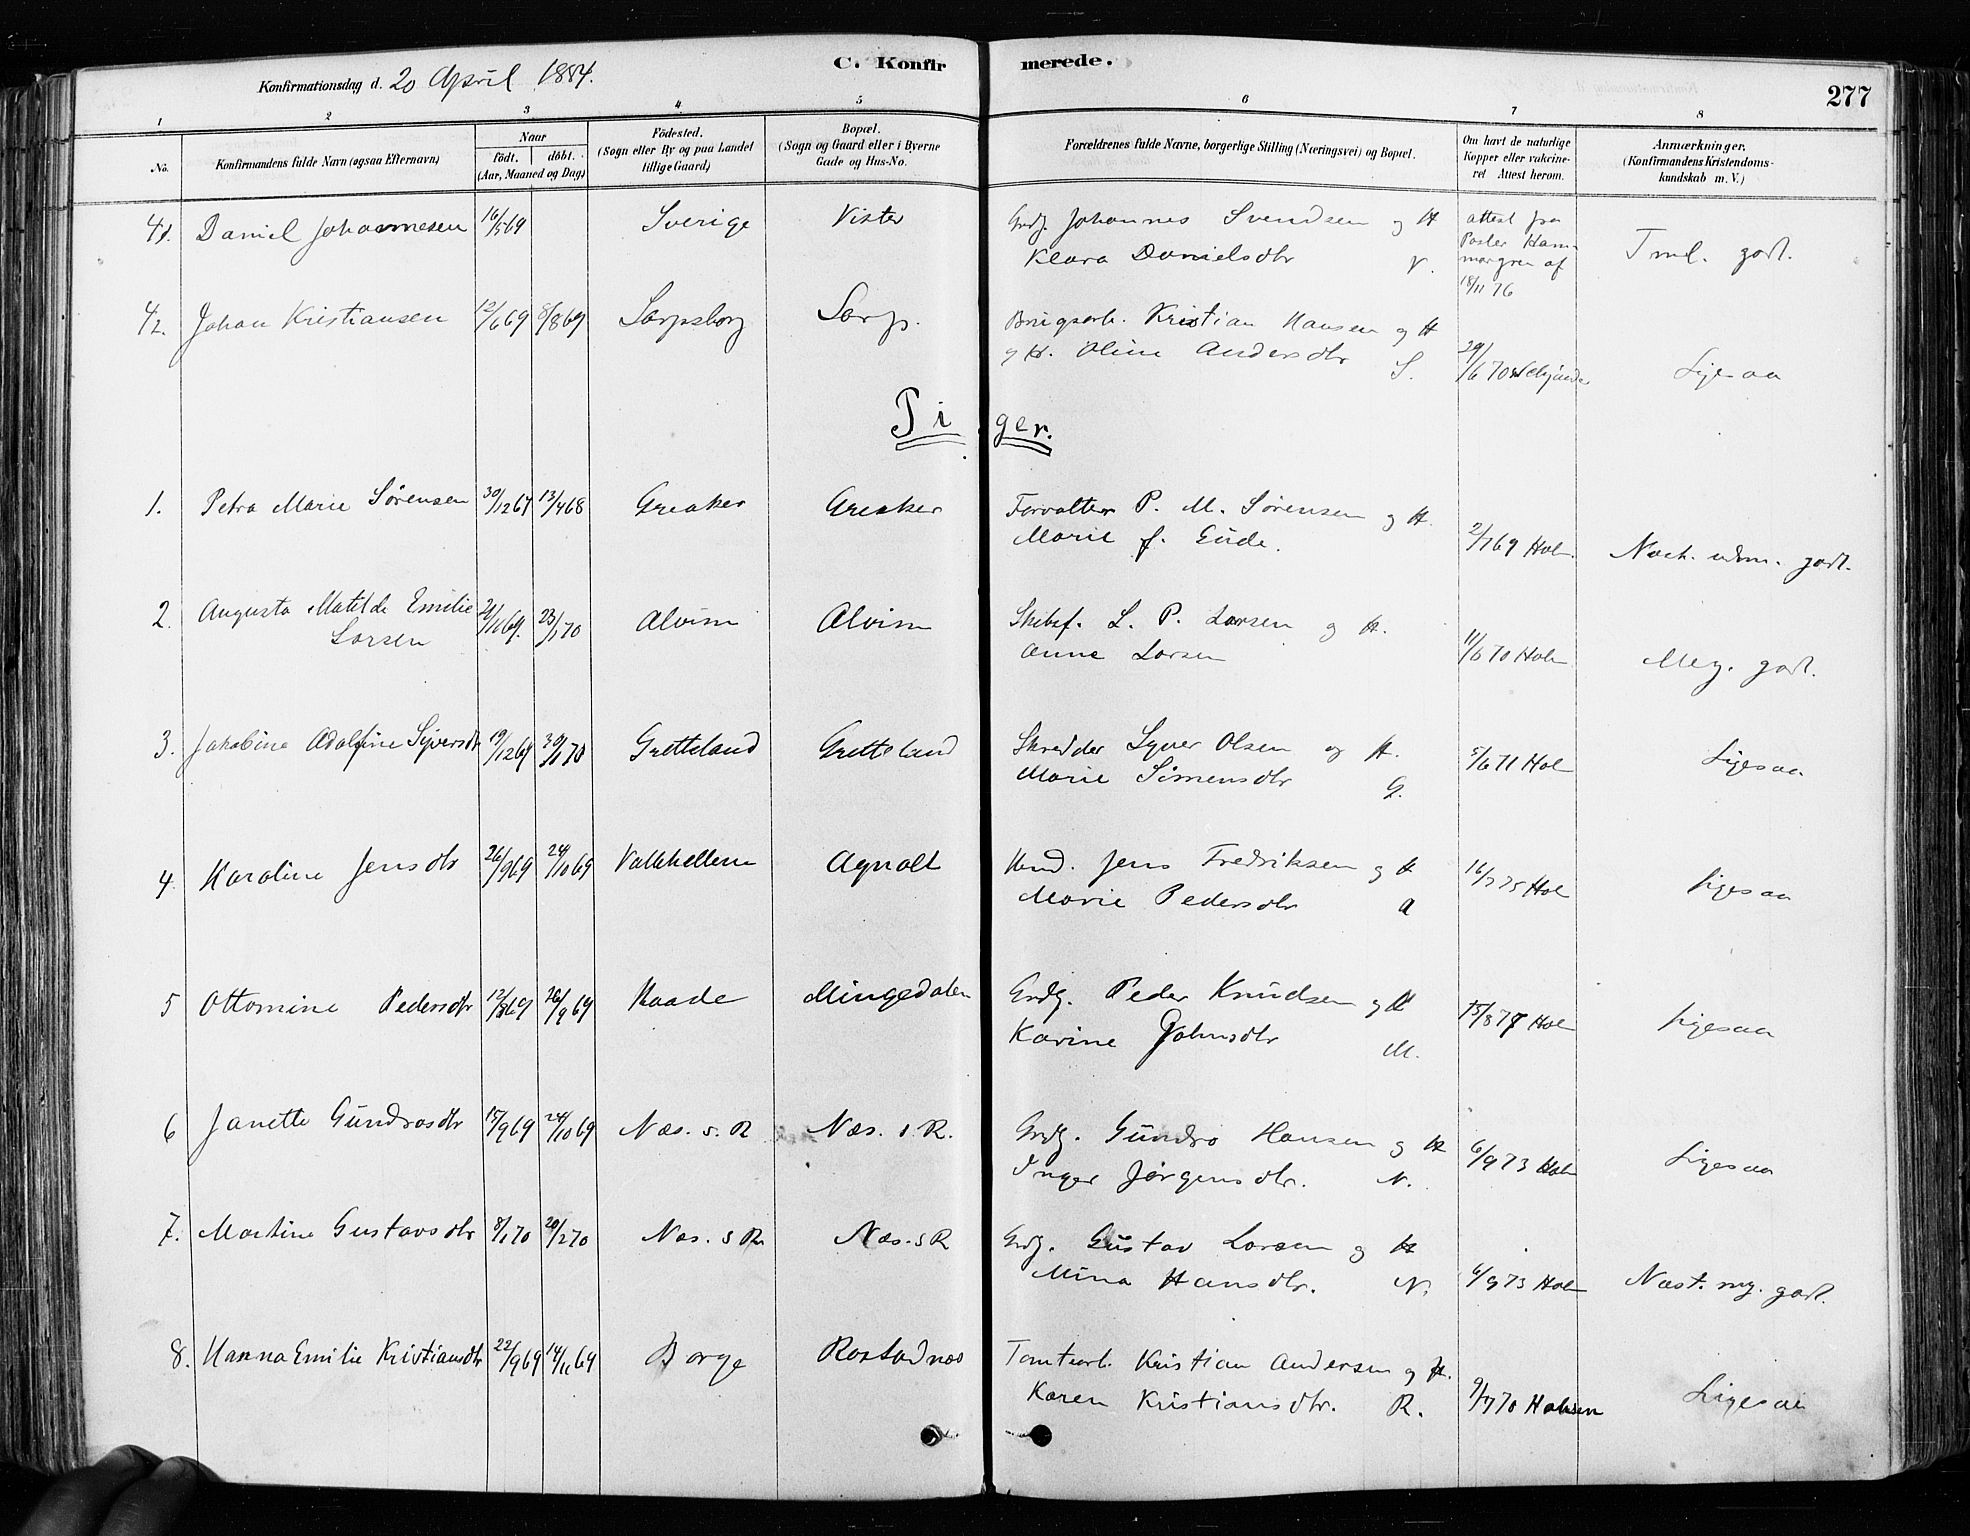 Konfirmationsdag d. 20 April 1884.
C. Konfirmerede.
277
1 2 3 4 5 6 7 8
No.
Konfirmandens fulde Navn (ogsaa Efternavn)
Naar
födt. döbt.
(Aar, Maaned og Dag)
Födested.
(Sogn eller By og paa Landet
tillige Gaard)
Bopæl.
(Sogn og Gaard eller i Byerne
Gade og Hus-No.
Forældrenes fulde Navne, borgerlige Stilling (Næringsvei) og Bopæl.
Om havt de naturlige
Kopper eller vakcine-
ret Attest herom.
Anmærkninger.
(Konfirmandens Kristendoms-
kundskab m. V.)
41. Daniel Johannesen 16/5 69 Sverige Vister Grdj. Johannes Svendsen og H
Klara Danielsdtr V.
attest fra
Pastor Ham-
margren af
18/11 76
Tml. godt.
42. Johan Kristiansen 12/6 69 8/8 69 Sarpsborg Sarp. Brugsarb. Kristian Hansen og H
og H. Oline Andersdtr S. 29/6 70 Ligesaa
Piger.
1. Petra Marie Sörensen 30/12 67 13/4 68 Greaker Greaker Forvalter P. M. Sörensen og H.
Marie f. Eude. 2/7 69 Holm Næst. udm. godt.
2. Augusta Matilde Emilie
Larsen 21/11 69. 23/1 70 Alvim Alvim Skibsf. L. P. Larsen og H.
Anne Larsen 11/6 70 Holm Meg. godt.
3. Jakobine Adolfine Syversdtr 19/12 69 30/1 70 Gretteland Gretteland Skredder Syver Olsen og H.
Marie Simensdtr G. 5/6 71 Hol Ligesaa
4. Karoline Jensdtr 26/9 69 24/10 69 Valkhellene Agnalt Hmd. Jens Fredriksen og H
Marie Pedersdtr A 16/7 75 Hol Ligesaa
5 Ottomine Pedersdtr 12/8 69 26/9 69 Raade Mingedalen Grdj. Peder Knudsen og H
Karine Johnsdtr M. 15/8 77 Hol Ligesaa
6 Janette Gundrosdtr 15/9 69 24/10 69 Næs. s. R Næs. s R. Grdj. Gundro Hansen og H
Inger Jørgensdtr. N. 6/9 73 Holm Ligesaa
7. Martine Gustavsdtr 8/1 70 20/2 70 Næs. s R. Næs. s R Grdj. Gustav Larsen og H
Mina Hansdtr. N. 6/9 73 Holm Næst. mg. godt.
8. Hanna Emilie Kristiansdtr 22/9 69 14/11 69 Borge Rostadnæs Tomtearb. Kristian Andersen og H.
Karen Kristiansdtr. R. 9/7 70 Holmsen Ligesaa